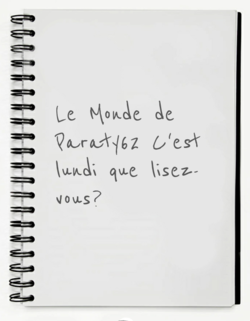 Le Monde de
Paraty62 C'est
lundi que lisez-
vous?